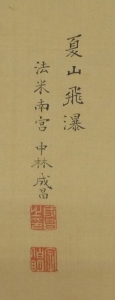 夏山飛瀑
法米南宮 中林成昌